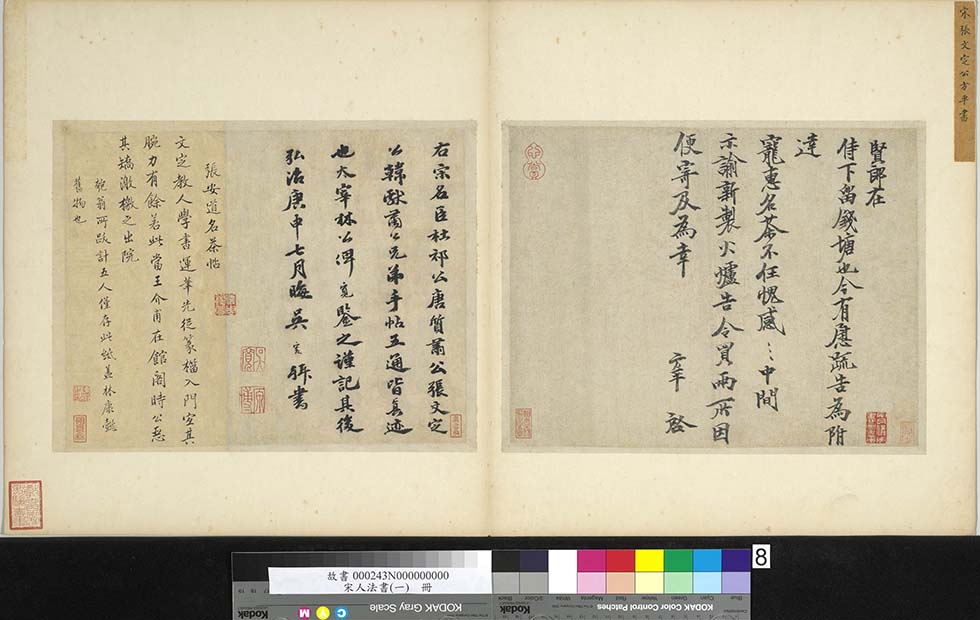 宋張文定公方平書
賢郎在
侍下留錢塘也今有慰疏告為附
達
寵惠名茶不任愧感〻中間
示諭新製火爐告令買兩一所因
便寄及為幸
右宋名臣杜祁公唐質肅公張文定
公韓獻肅公兄弟手帖五通皆真迹
也太宰林公俾寬鑒之謹記其後
弘治庚申七月晦吳寬拜書
張安道名茶帖
文定教人學書運筆先從篆楷入門空其
腕力有餘若此當王介甫在館閣時公惡
其矯激檄之出院
匏翁所跋計五人僅存此紙蓋林康懿
舊物也
8
故書 000243N000000000
宋人法書(一) 冊
KODAK Gray Scale
Kodak
C Y M
KODAK Color Control Patches
Blue Cyan Green Yellow Red Magenta White 3/Color Black